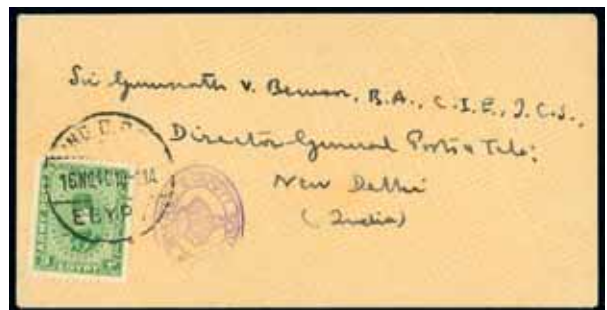 Sir Gurunath V. Bewoor, B.A., C.I.E., I.C.S.,
Director General Posts & Tele:
New Delhi
(India)
EGYPT
ARMY POST
EGYPT